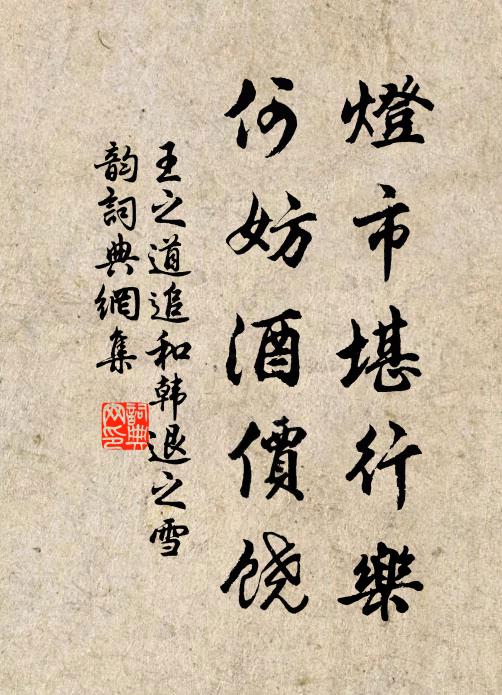 燈市堪行樂
何妨酒價饶
王之道追和韩退之雪
韵詞典網集
詞典
网印